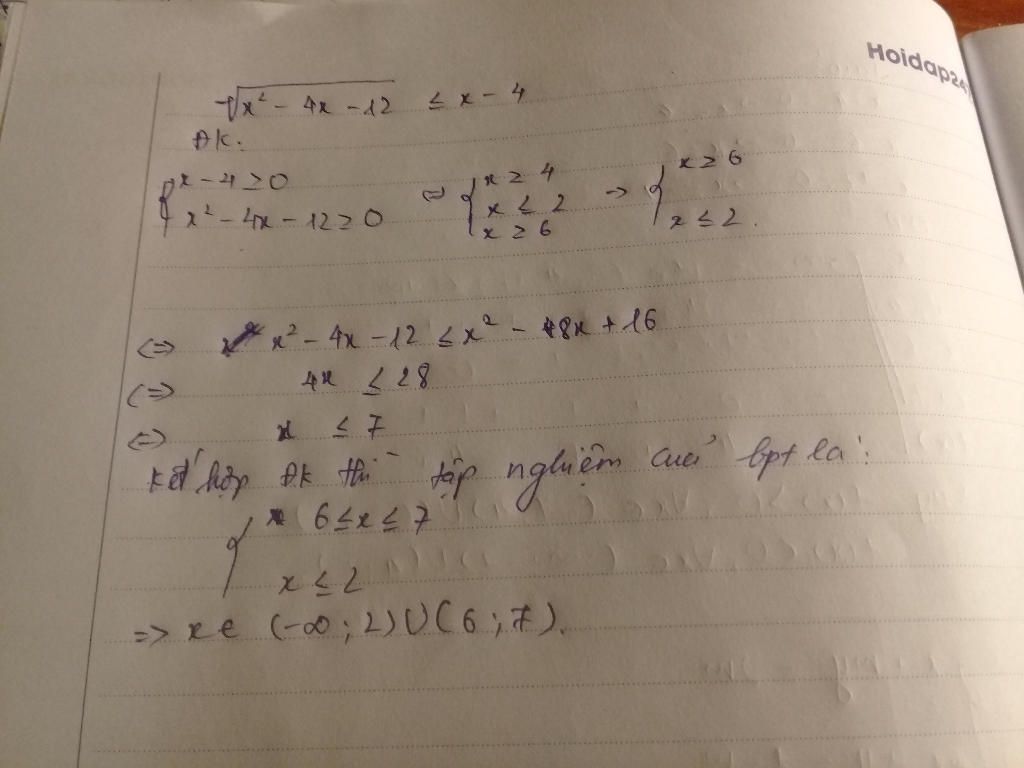 Hoidap247
√x² - 4x - 12 ≤ x - 4
ĐK:
{ x - 4 ≥ 0 ⇔ { x ≥ 4 → { x ≥ 6
x² - 4x - 12 ≥ 0 x ≤ 2 x ≤ 2.
x ≥ 6
⇔ x² - 4x - 12 ≤ x² - 8x + 16
⇔ 4x ≤ 28
⇔ x ≤ 7
kết hợp ĐK thì tập nghiệm của bpt là:
{ 6 ≤ x ≤ 7
x ≤ 2
=> x ∈ (-∞; 2) ∪ (6; 7).